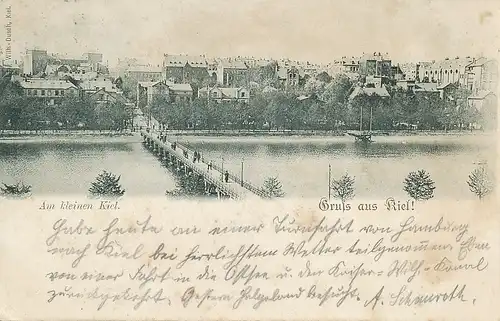 Am kleinen Kiel.
Gruss aus Kiel!
Habe heute an einer Turnfahrt von Hamburg
nach Kiel bei herrlichstem Wetter teilgenommen. Eben
von einer Fahrt in die Ostsee u. den Kaiser-Wilh-Kanal
zurückgekehrt. Gestern Helgoland besucht. A.